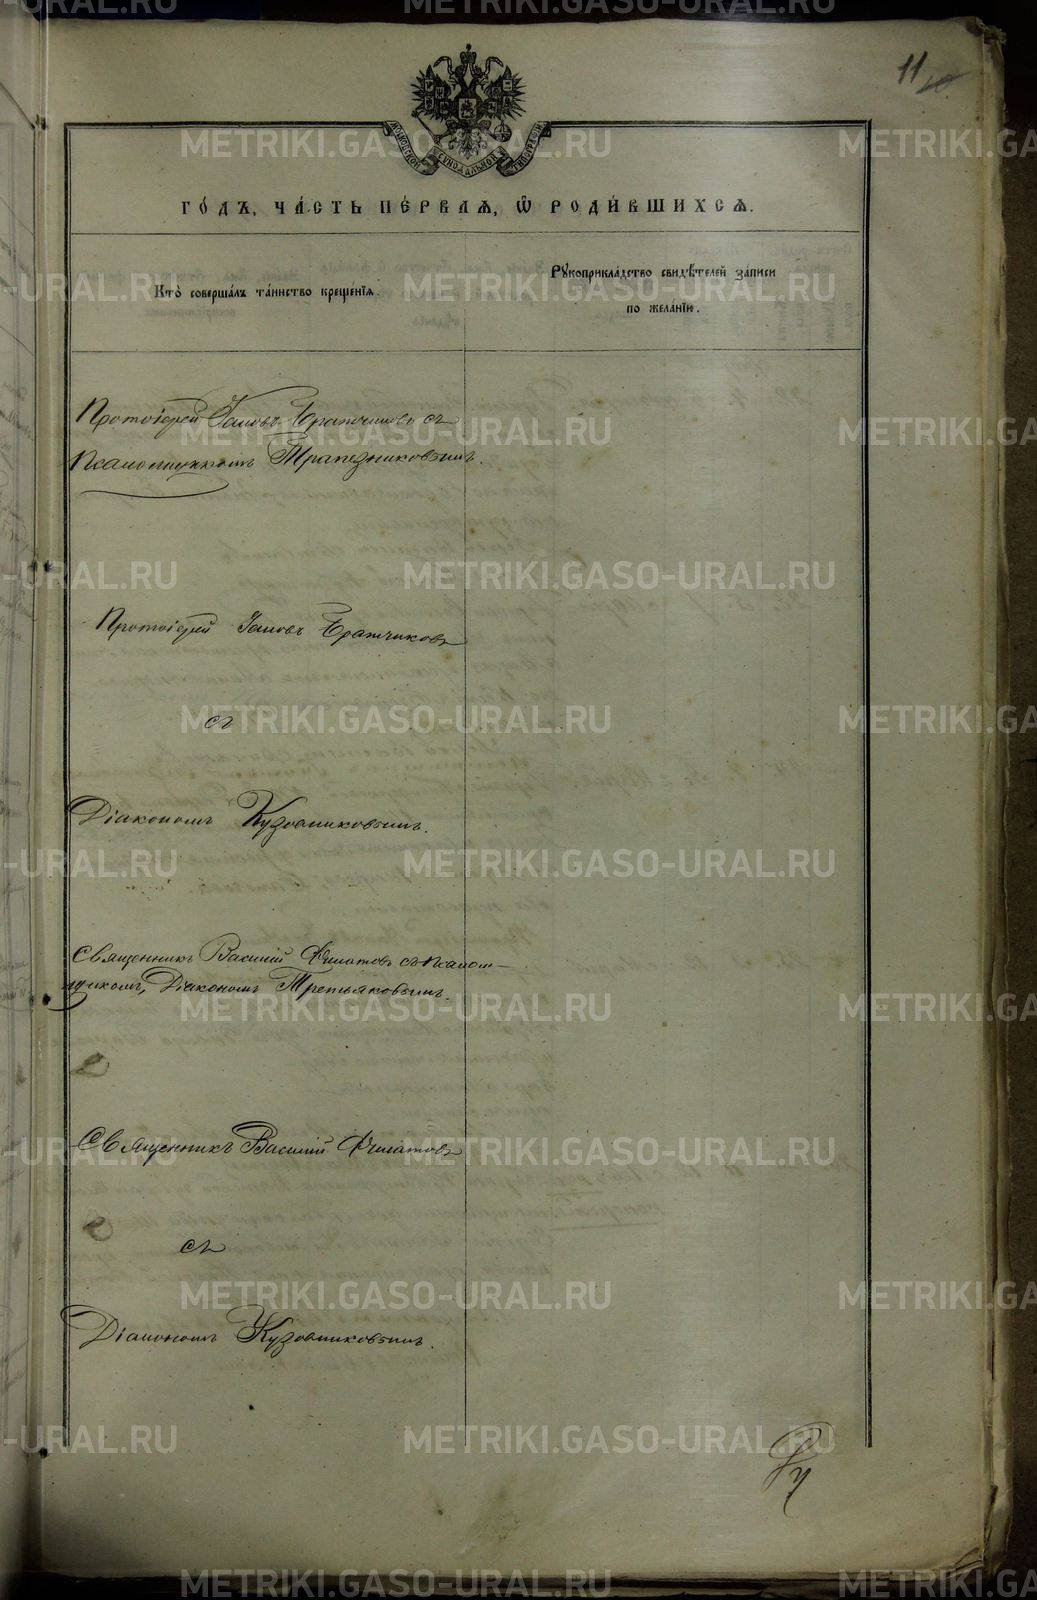 11
МОСКОВСКОЙ СѴНОДАЛЬНОЙ ТИПОГРАФІИ
ГО́ДЪ, ЧА́СТЬ ПЕ́РВАѦ, Ѽ РОДИ́ВШИХСѦ.
Кто̀ соверша́лъ та́инство креще́нїѧ.
Рꙋкоприкла́дство свидѣ́телей за́писи
по жела́нїю.
Протоіерей Іаковъ Братчиковъ съ
Псаломщикомъ Трапезниковымъ.
Протоіерей Іаковъ Братчиковъ
съ
Діакономъ Кузовниковымъ.
Священникъ Василій Филатовъ съ псалом-
щикомъ, Діакономъ Третьяковымъ.
Священникъ Василій Филатовъ
съ
Діакономъ Кузовниковымъ.
METRIKI.GASO-URAL.RU